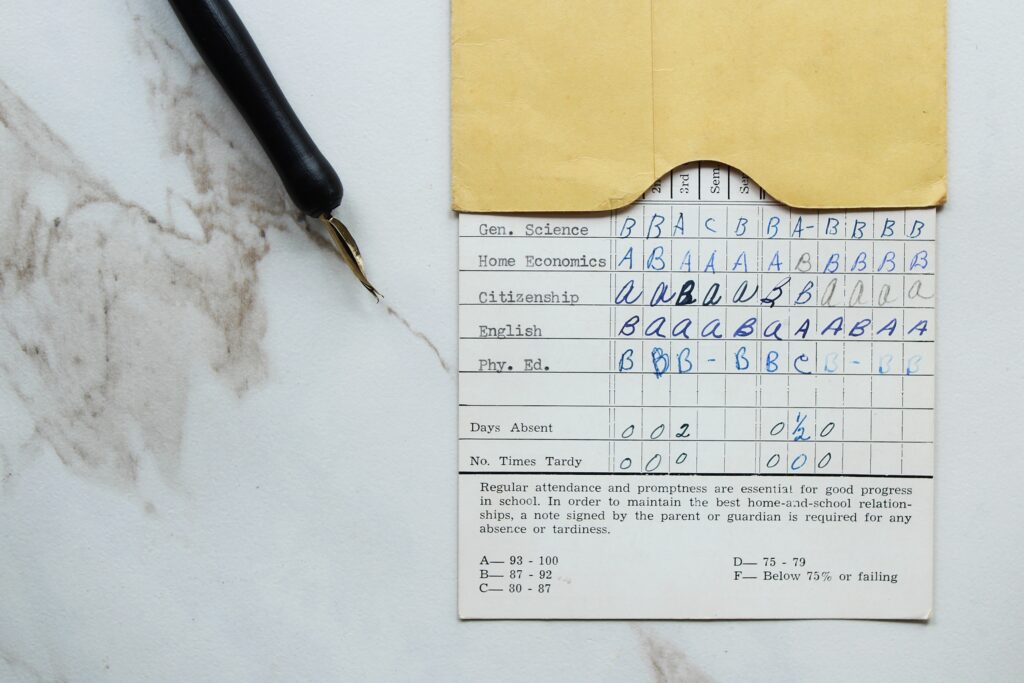 2n 3rd Sem Se
Gen. Science B B A C B B A- B B B B
Home Economics A B A A A A B B B B B
Citizenship a a B a a B B a a a a
English B a a a B a A A B A A
Phy. Ed. B B B - B B C B - B B
Days Absent 0 0 2 0 1/2 0
No. Times Tardy 0 0 0 0 0 0
Regular attendance and promptness are essential for good progress
in school. In order to maintain the best home-and-school relation-
ships, a note signed by the parent or guardian is required for any
absence or tardiness.
A— 93 - 100 D— 75 - 79
B— 87 - 92 F— Below 75% or failing
C— 80 - 87